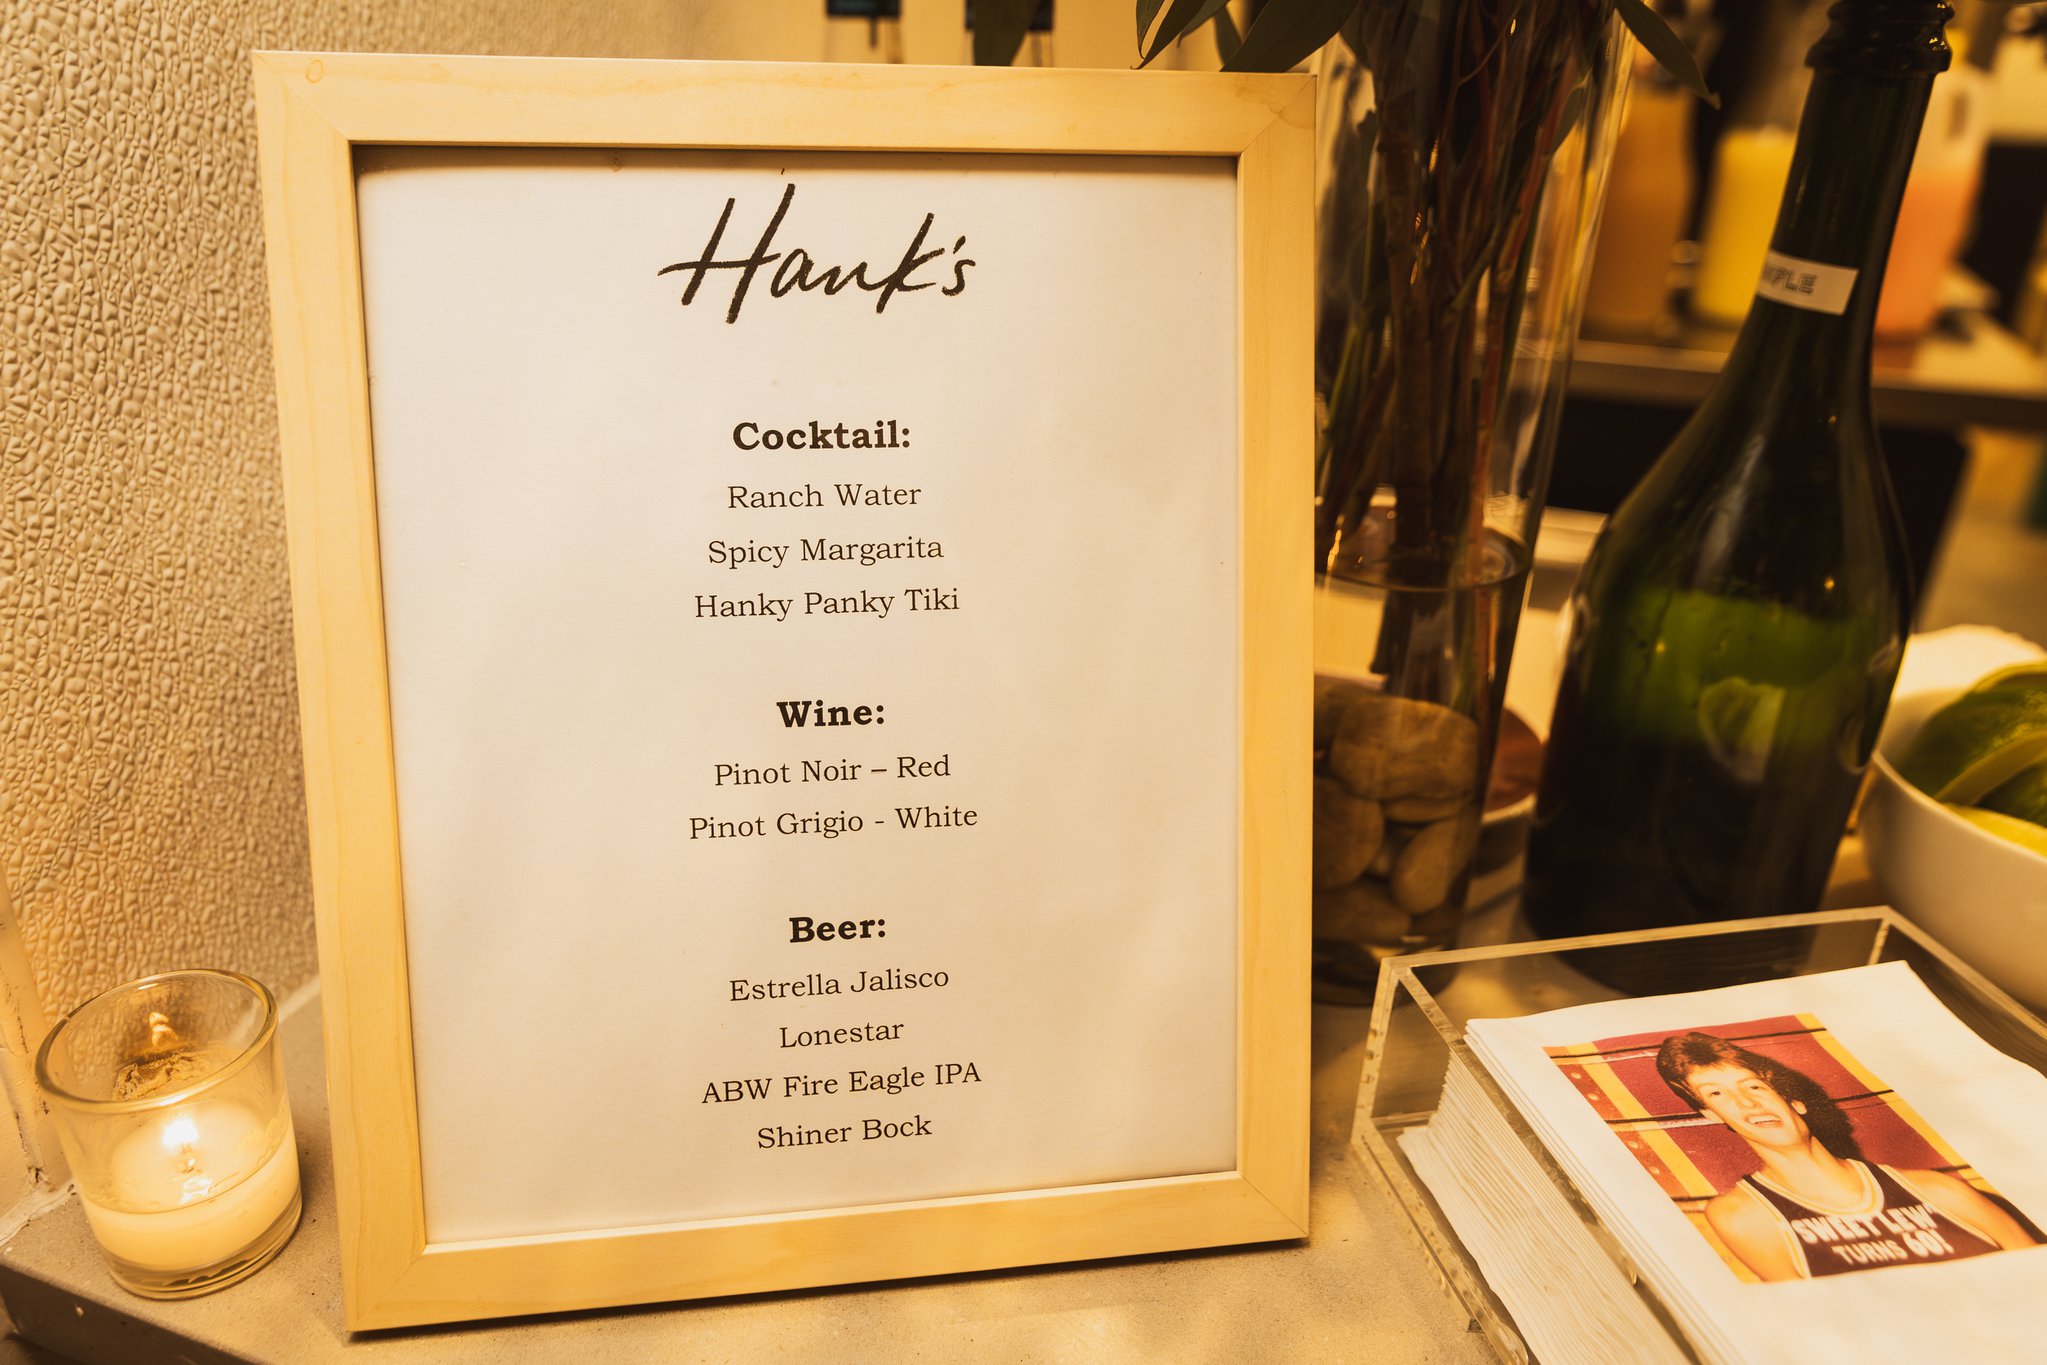 Hank's
Cocktail:
Ranch Water
Spicy Margarita
Hanky Panky Tiki
Wine:
Pinot Noir – Red
Pinot Grigio - White
Beer:
Estrella Jalisco
Lonestar
ABW Fire Eagle IPA
Shiner Bock
"SWEET LEW"
TURNS 60!